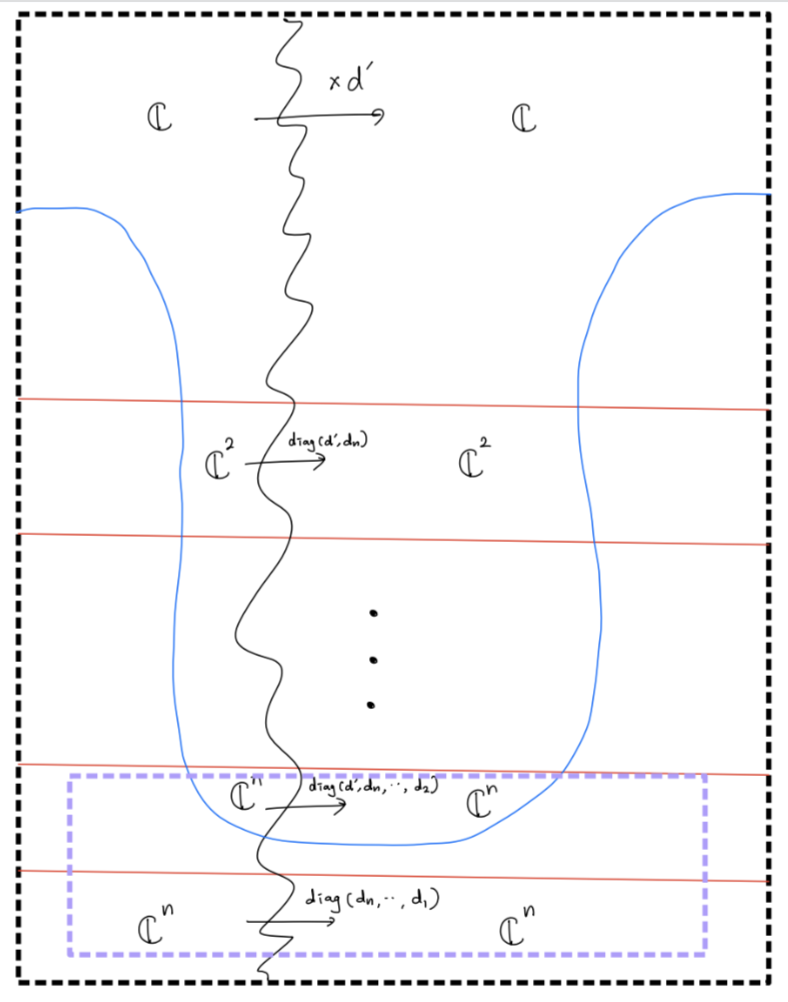 × d′
ℂ ℂ
diag(d′,dn)
ℂ² ℂ²
diag(d′,dn,··,d₂)
ℂⁿ ℂⁿ
diag(dn,··,d₁)
ℂⁿ ℂⁿ